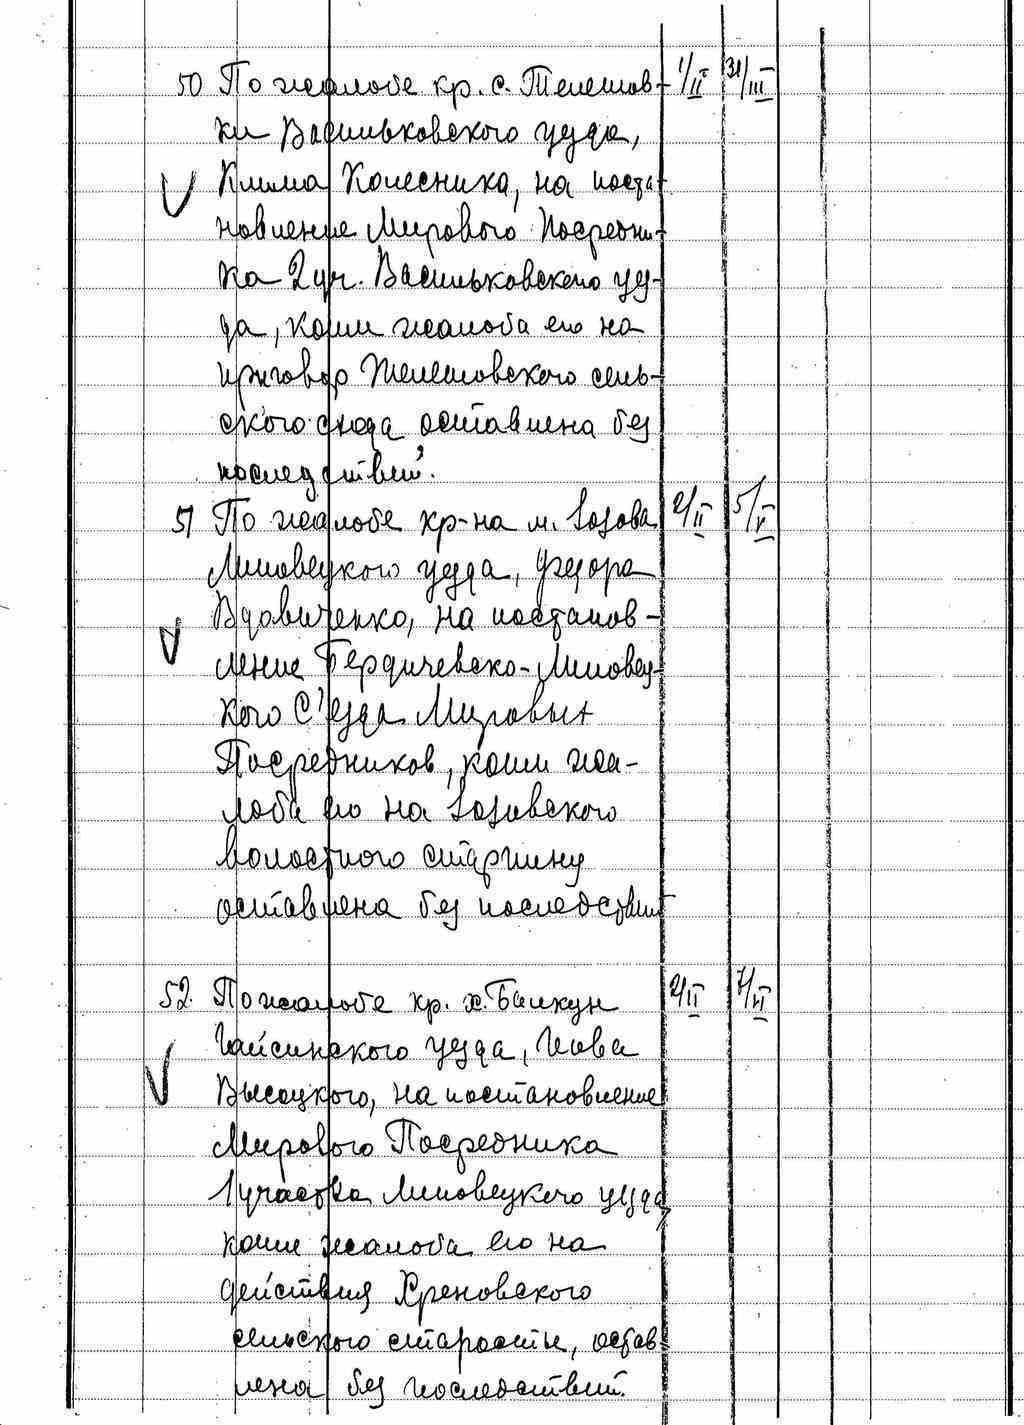 50 По жалобе кр. с. Телешов- 1/II 31/III
ки Васильковского уезда,
Клима Колесника, на поста-
новление Мирового Посредни-
ка 2 уч. Васильковского уез-
да, коим жалоба его на
приговор Телешовского сель-
ского схода оставлена без
последствий.
51 По жалобе кр-на м. Лозова 2/II 5/V
Липовецкого уезда, Федора
Вдовиченко, на постанов-
ление Бердичевско-Липовец-
кого С'езда Мировых
Посредников, коим жа-
лоба его на Лозовского
волостного старшину
оставлена без последствий
52. По жалобе кр. х. Балкун 2/II 7/VI
Гайсинского уезда, Иова
Высоцкого, на постановление
Мирового Посредника
1 участка Липовецкого уезда,
коим жалоба его на
действия Хреновского
сельского старосты, остав-
лена без последствий.